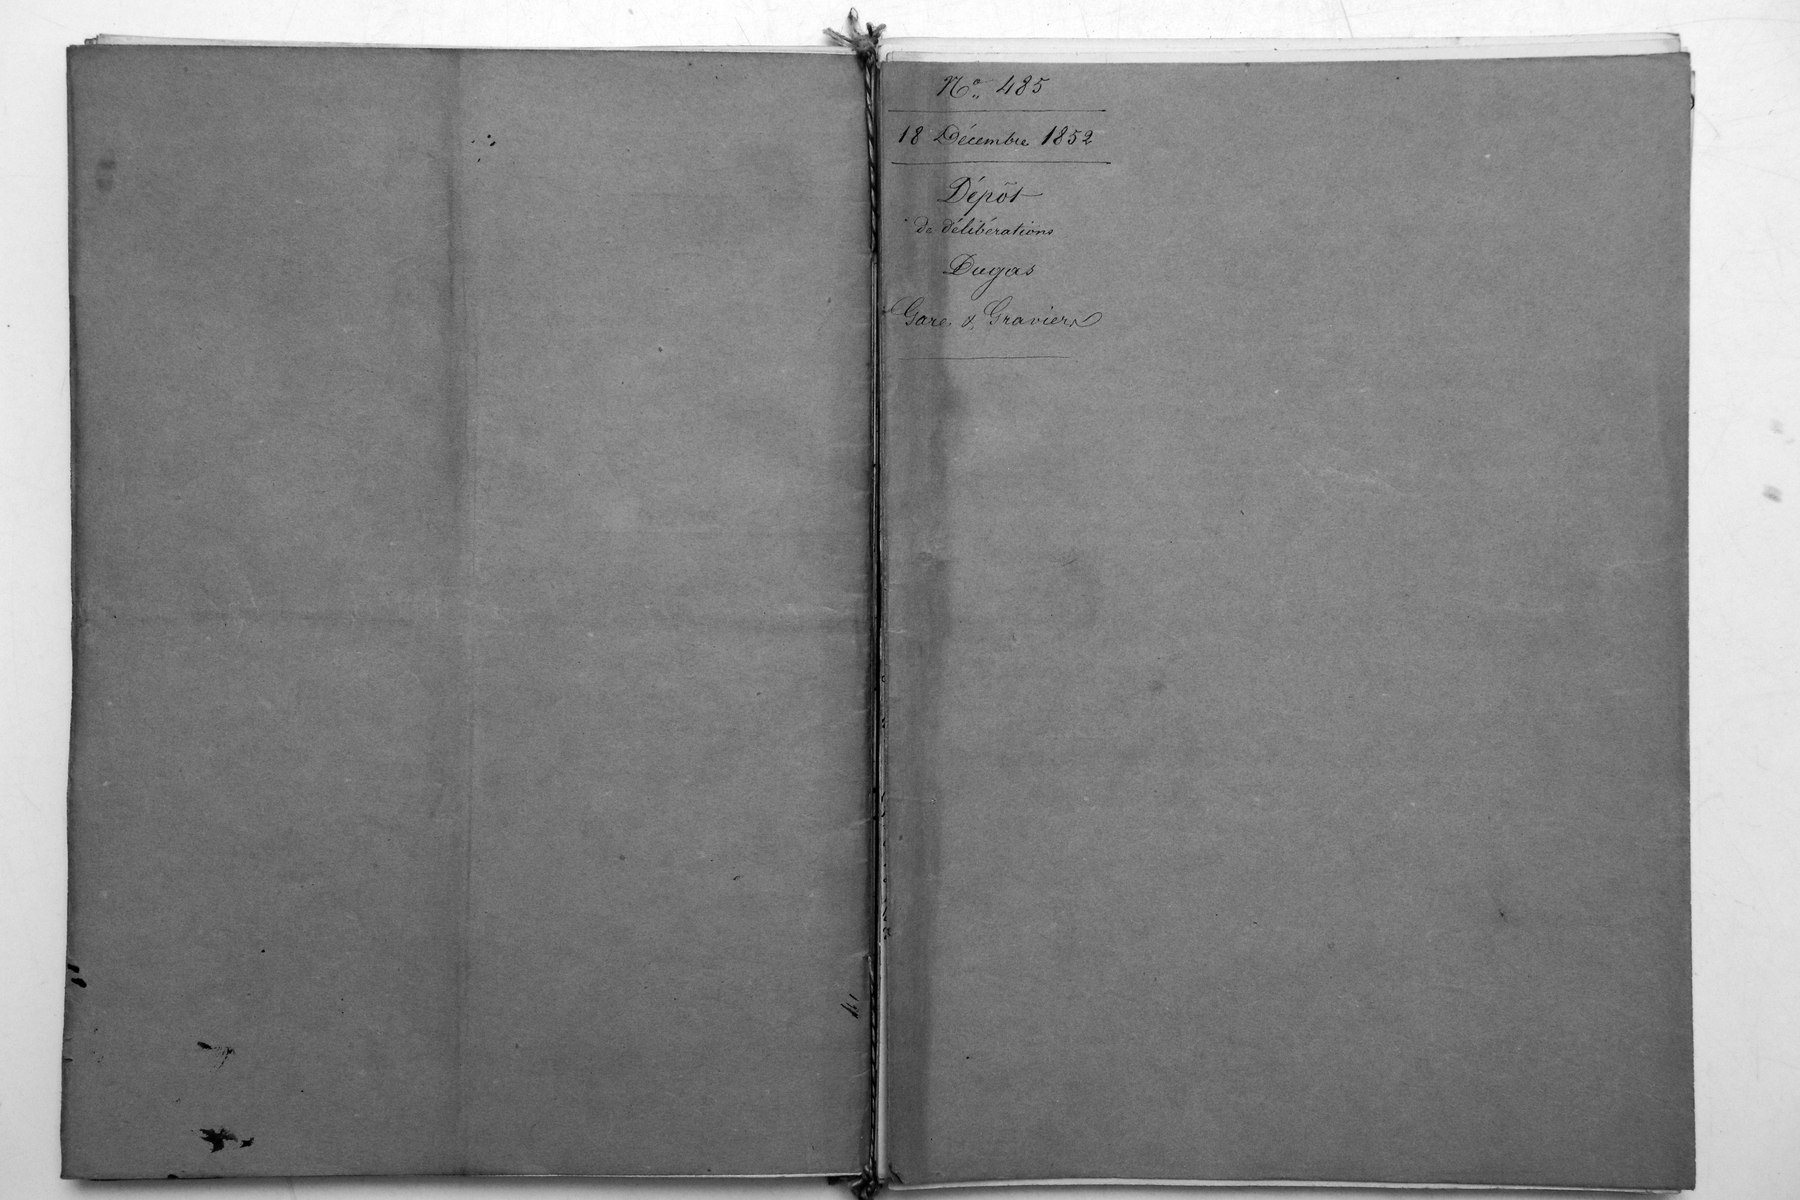 No. 485
18 Décembre 1852
Dépôt
de délibérations
Dugas
Gare & Graviers